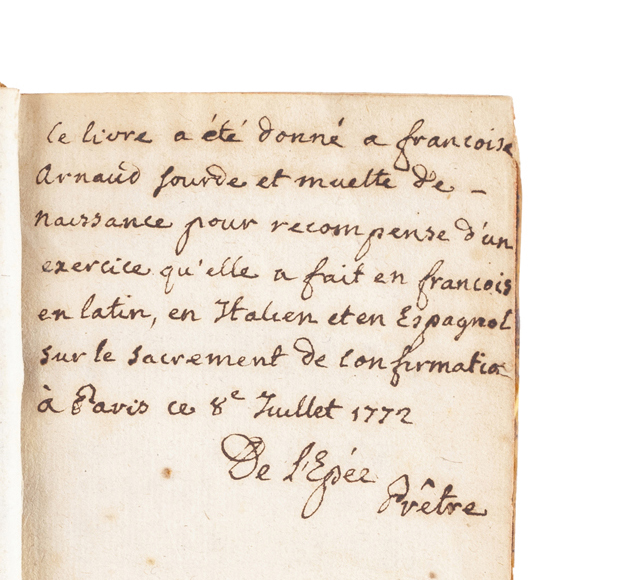 Ce livre a été donné a francoise
Arnaud sourde et muette de -
naissance pour recompense d'un
exercice qu'elle a fait en francois
en latin, en Italien et en Espagnol
sur le sacrement de Confirmation
à Paris ce 8e Juillet 1772
De l'Epée
Prêtre